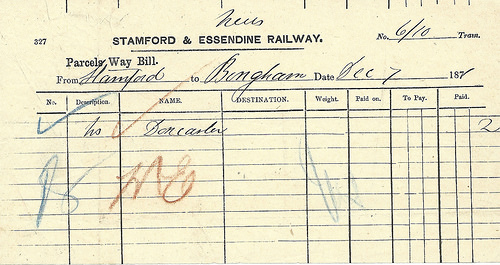 327 STAMFORD & ESSENDINE RAILWAY. No. 6/10 Train.
Parcels Way Bill.
From Stamford to Bingham Date Dec 7 187
No. Description. NAME. DESTINATION. Weight. Paid on. To Pay. Paid.
Doncaster 2